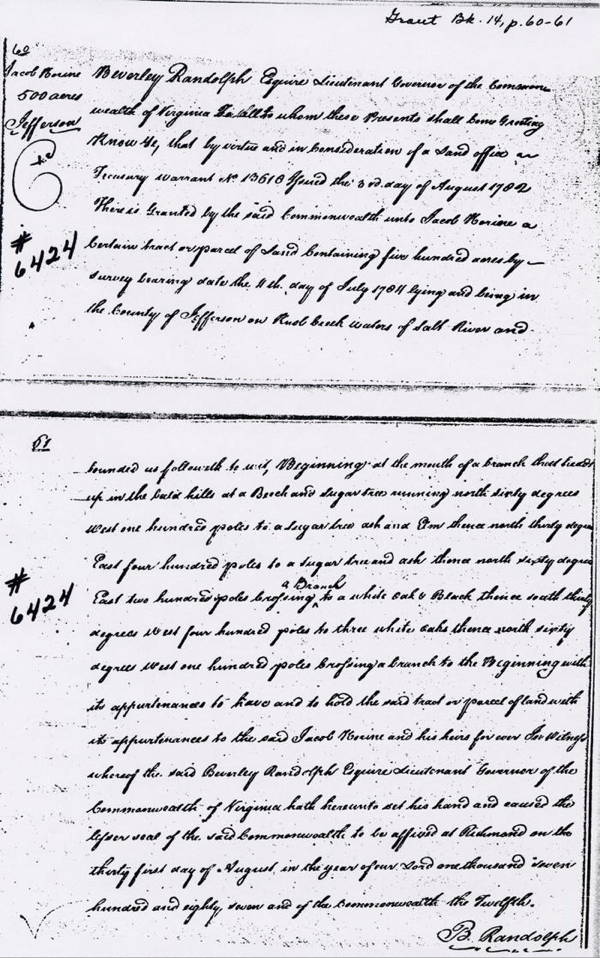 Grant Bk. 14, p. 60-61
60
Jacob Norine
500 acres
Jefferson
#
6424
Beverley Randolph Esquire Lieutenant Governor of the Common
wealth of Virginia To all to whom these Presents shall Come Greeting
Know Ye, that by virtue and in Consideration of a Land office
Treasury warrant No 13618 Issued the 3rd day of August 1782
There is Granted by the said Commonwealth unto Jacob Norine a
Certain tract or parcel of Land Containing five hundred acres by
survey bearing date the 4th day of July 1784 lying and being in
the County of Jefferson on Knob Creek waters of Salt River and
61
bounded as followeth to wit, Beginning at the mouth of a branch that heads
up in the bald hills at a Beech and Sugar tree running north sixty degrees
West one hundred poles to a Sugar tree ash and Elm thence north thirty degrees
East four hundred poles to a Sugar tree and ash thence north sixty degrees
#
6424
a Branch
East two hundred poles Crossing to a white oak & Black thence south thirty
degrees West four hundred poles to three white oaks thence north sixty
degrees West one hundred poles Crossing a branch to the Beginning with
its appurtenances to have and to hold the said tract or parcel of land with
its appurtenances to the said Jacob Norine and his heirs for ever In Witness
whereof the said Beverley Randolph Esquire Lieutenant Governor of the
Commonwealth of Virginia hath hereunto set his hand and caused the
lesser seal of the said Commonwealth to be affixed at Richmond on the
thirty first day of August in the year of our Lord one thousand seven
hundred and eighty seven and of the Commonwealth the Twelfth.
B. Randolph